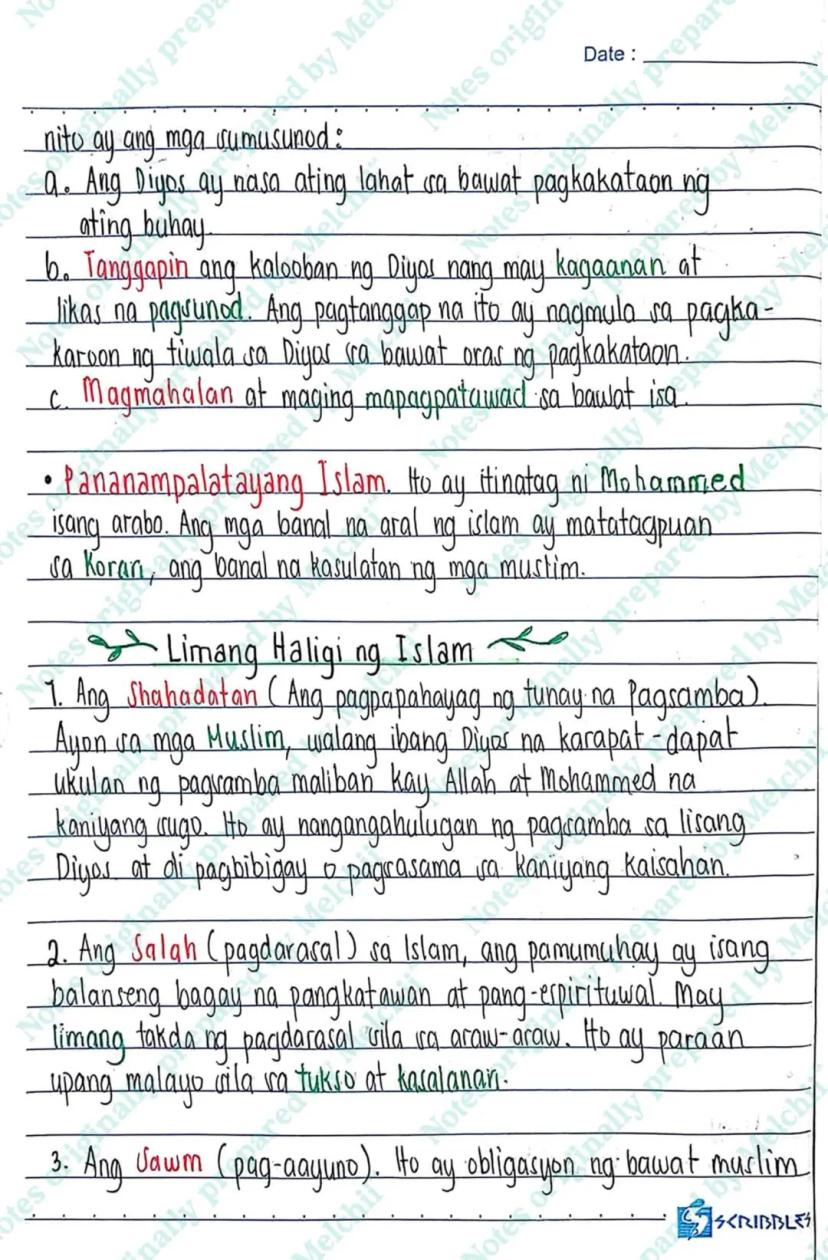 Date : 
nito ay ang mga sumusunod:
a. Ang Diyos ay nasa ating lahat sa bawat pagkakataon ng
ating buhay.
b. Tanggapin ang kalooban ng Diyos nang may kagaanan at
likas na pagsunod. Ang pagtanggap na ito ay nagmula sa pagka-
karoon ng tiwala sa Diyos sa bawat oras ng pagkakataon.
c. Magmahalan at maging mapagpatawad sa bawat isa.
• Pananampalatayang Islam. Ito ay itinatag ni Mohammed
isang arabo. Ang mga banal na aral ng islam ay matatagpuan
sa Koran, ang banal na kasulatan ng mga muslim.
Limang Haligi ng Islam
1. Ang Shahadatan (Ang pagpapahayag ng tunay na Pagsamba).
Ayon sa mga Muslim, walang ibang Diyos na karapat-dapat
ukulan ng pagsamba maliban kay Allah at Mohammed na
kaniyang sugo. Ito ay nangangahulugan ng pagsamba sa iisang
Diyos at di pagbibigay o pagsasama sa kaniyang kaisahan.
2. Ang Salah (pagdarasal) sa Islam, ang pamumuhay ay isang
balanseng bagay na pangkatawan at pang-espirituwal. May
limang takda ng pagdarasal sila sa araw-araw. Ito ay paraan
upang malayo sila sa tukso at kasalanan.
3. Ang Sawm (pag-aayuno). Ito ay obligasyon ng bawat muslim
SCRIBBLES
Notes originally prepared by Melchii